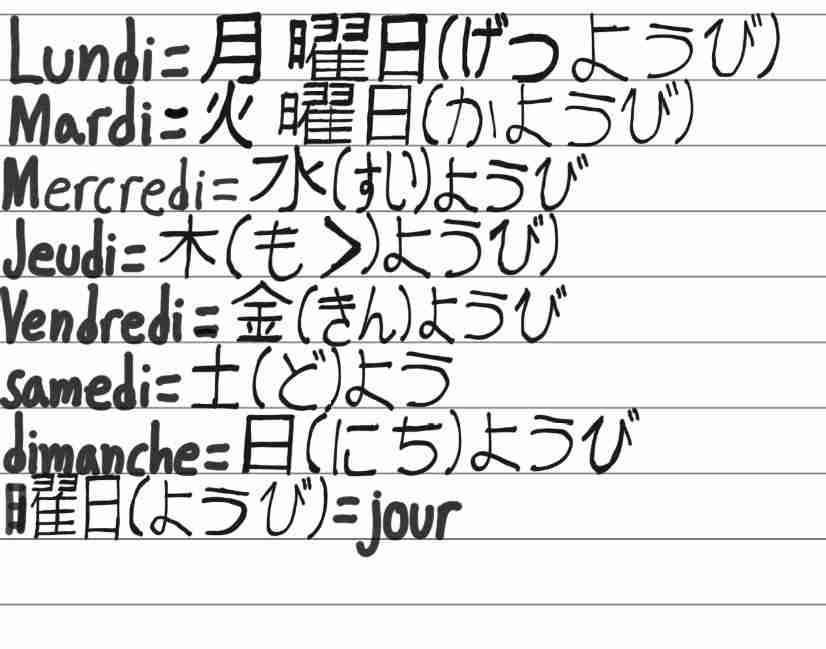 Lundi=月曜日(げつようび)
Mardi=火曜日(かようび)
Mercredi=水(すい)ようび
Jeudi=木(もく)ようび)
Vendredi=金(きん)ようび
samedi=土(ど)よう
dimanche=日(にち)ようび
曜日(ようび)=jour